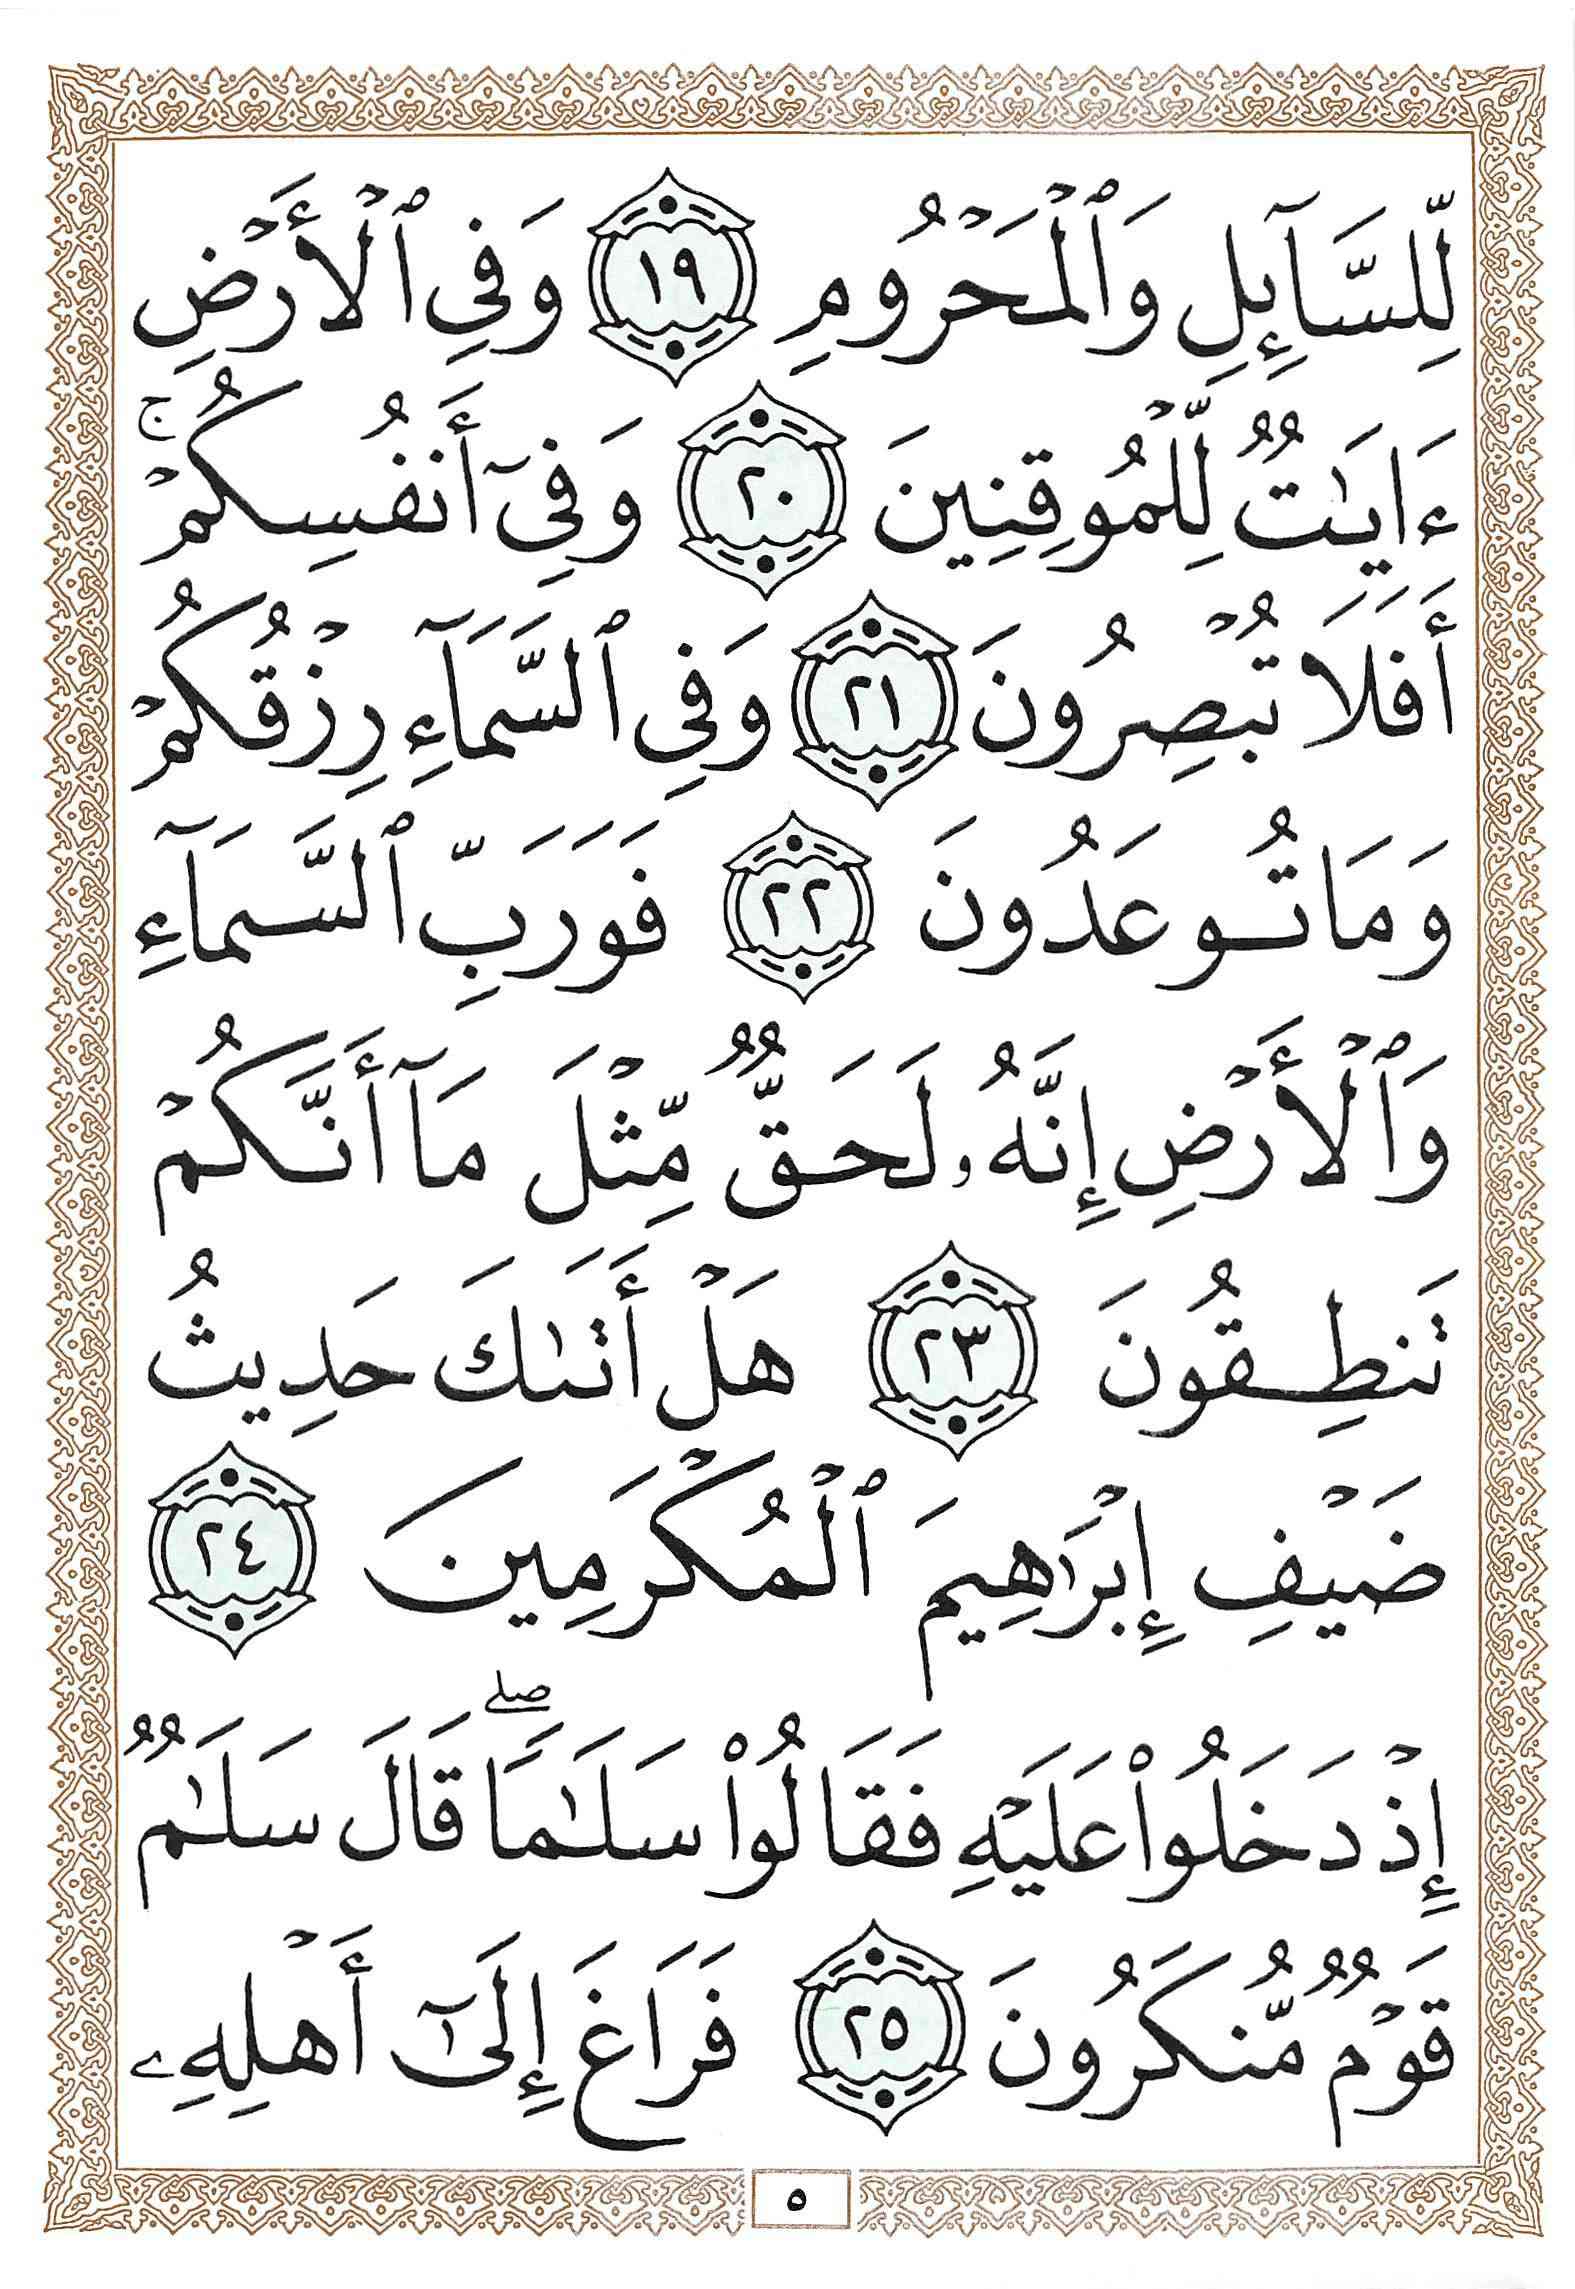 لِّلسَّآئِلِ وَٱلْمَحْرُومِ ١٩ وَفِي ٱلْأَرْضِ
ءَايَٰتٌ لِّلْمُوقِنِينَ ٢٠ وَفِيٓ أَنفُسِكُمْ ۚ
أَفَلَا تُبْصِرُونَ ٢١ وَفِي ٱلسَّمَآءِ رِزْقُكُمْ
وَمَا تُوعَدُونَ ٢٢ فَوَرَبِّ ٱلسَّمَآءِ
وَٱلْأَرْضِ إِنَّهُۥ لَحَقٌّ مِّثْلَ مَآ أَنَّكُمْ
تَنطِقُونَ ٢٣ هَلْ أَتَىٰكَ حَدِيثُ
ضَيْفِ إِبْرَٰهِيمَ ٱلْمُكْرَمِينَ ٢٤
إِذْ دَخَلُوا۟ عَلَيْهِ فَقَالُوا۟ سَلَٰمًا ۖ قَالَ سَلَٰمٌ
قَوْمٌ مُّنكَرُونَ ٢٥ فَرَاغَ إِلَىٰٓ أَهْلِهِۦ
٥